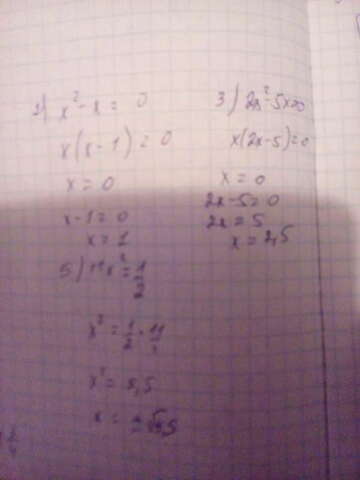 1) x² - x = 0
x(x-1) = 0
x = 0
x-1=0
x = 1
3) 2x²-5x=0
x(2x-5)=0
x = 0
2x-5=0
2x = 5
x = 2,5
5) 11x² = 1/2
x² = 1/2 · 11
x² = 5,5
x = ±√5,5